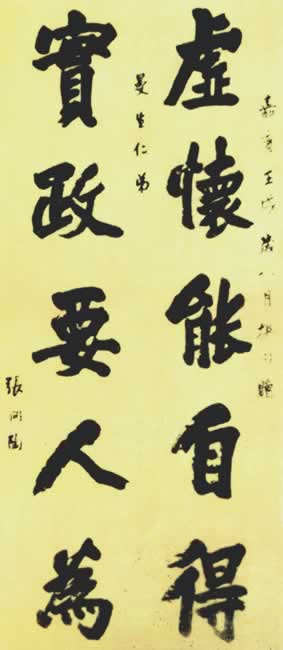 嘉慶壬戌歲八月
虛懷能自得
曼生仁弟
實政要人為
張問陶